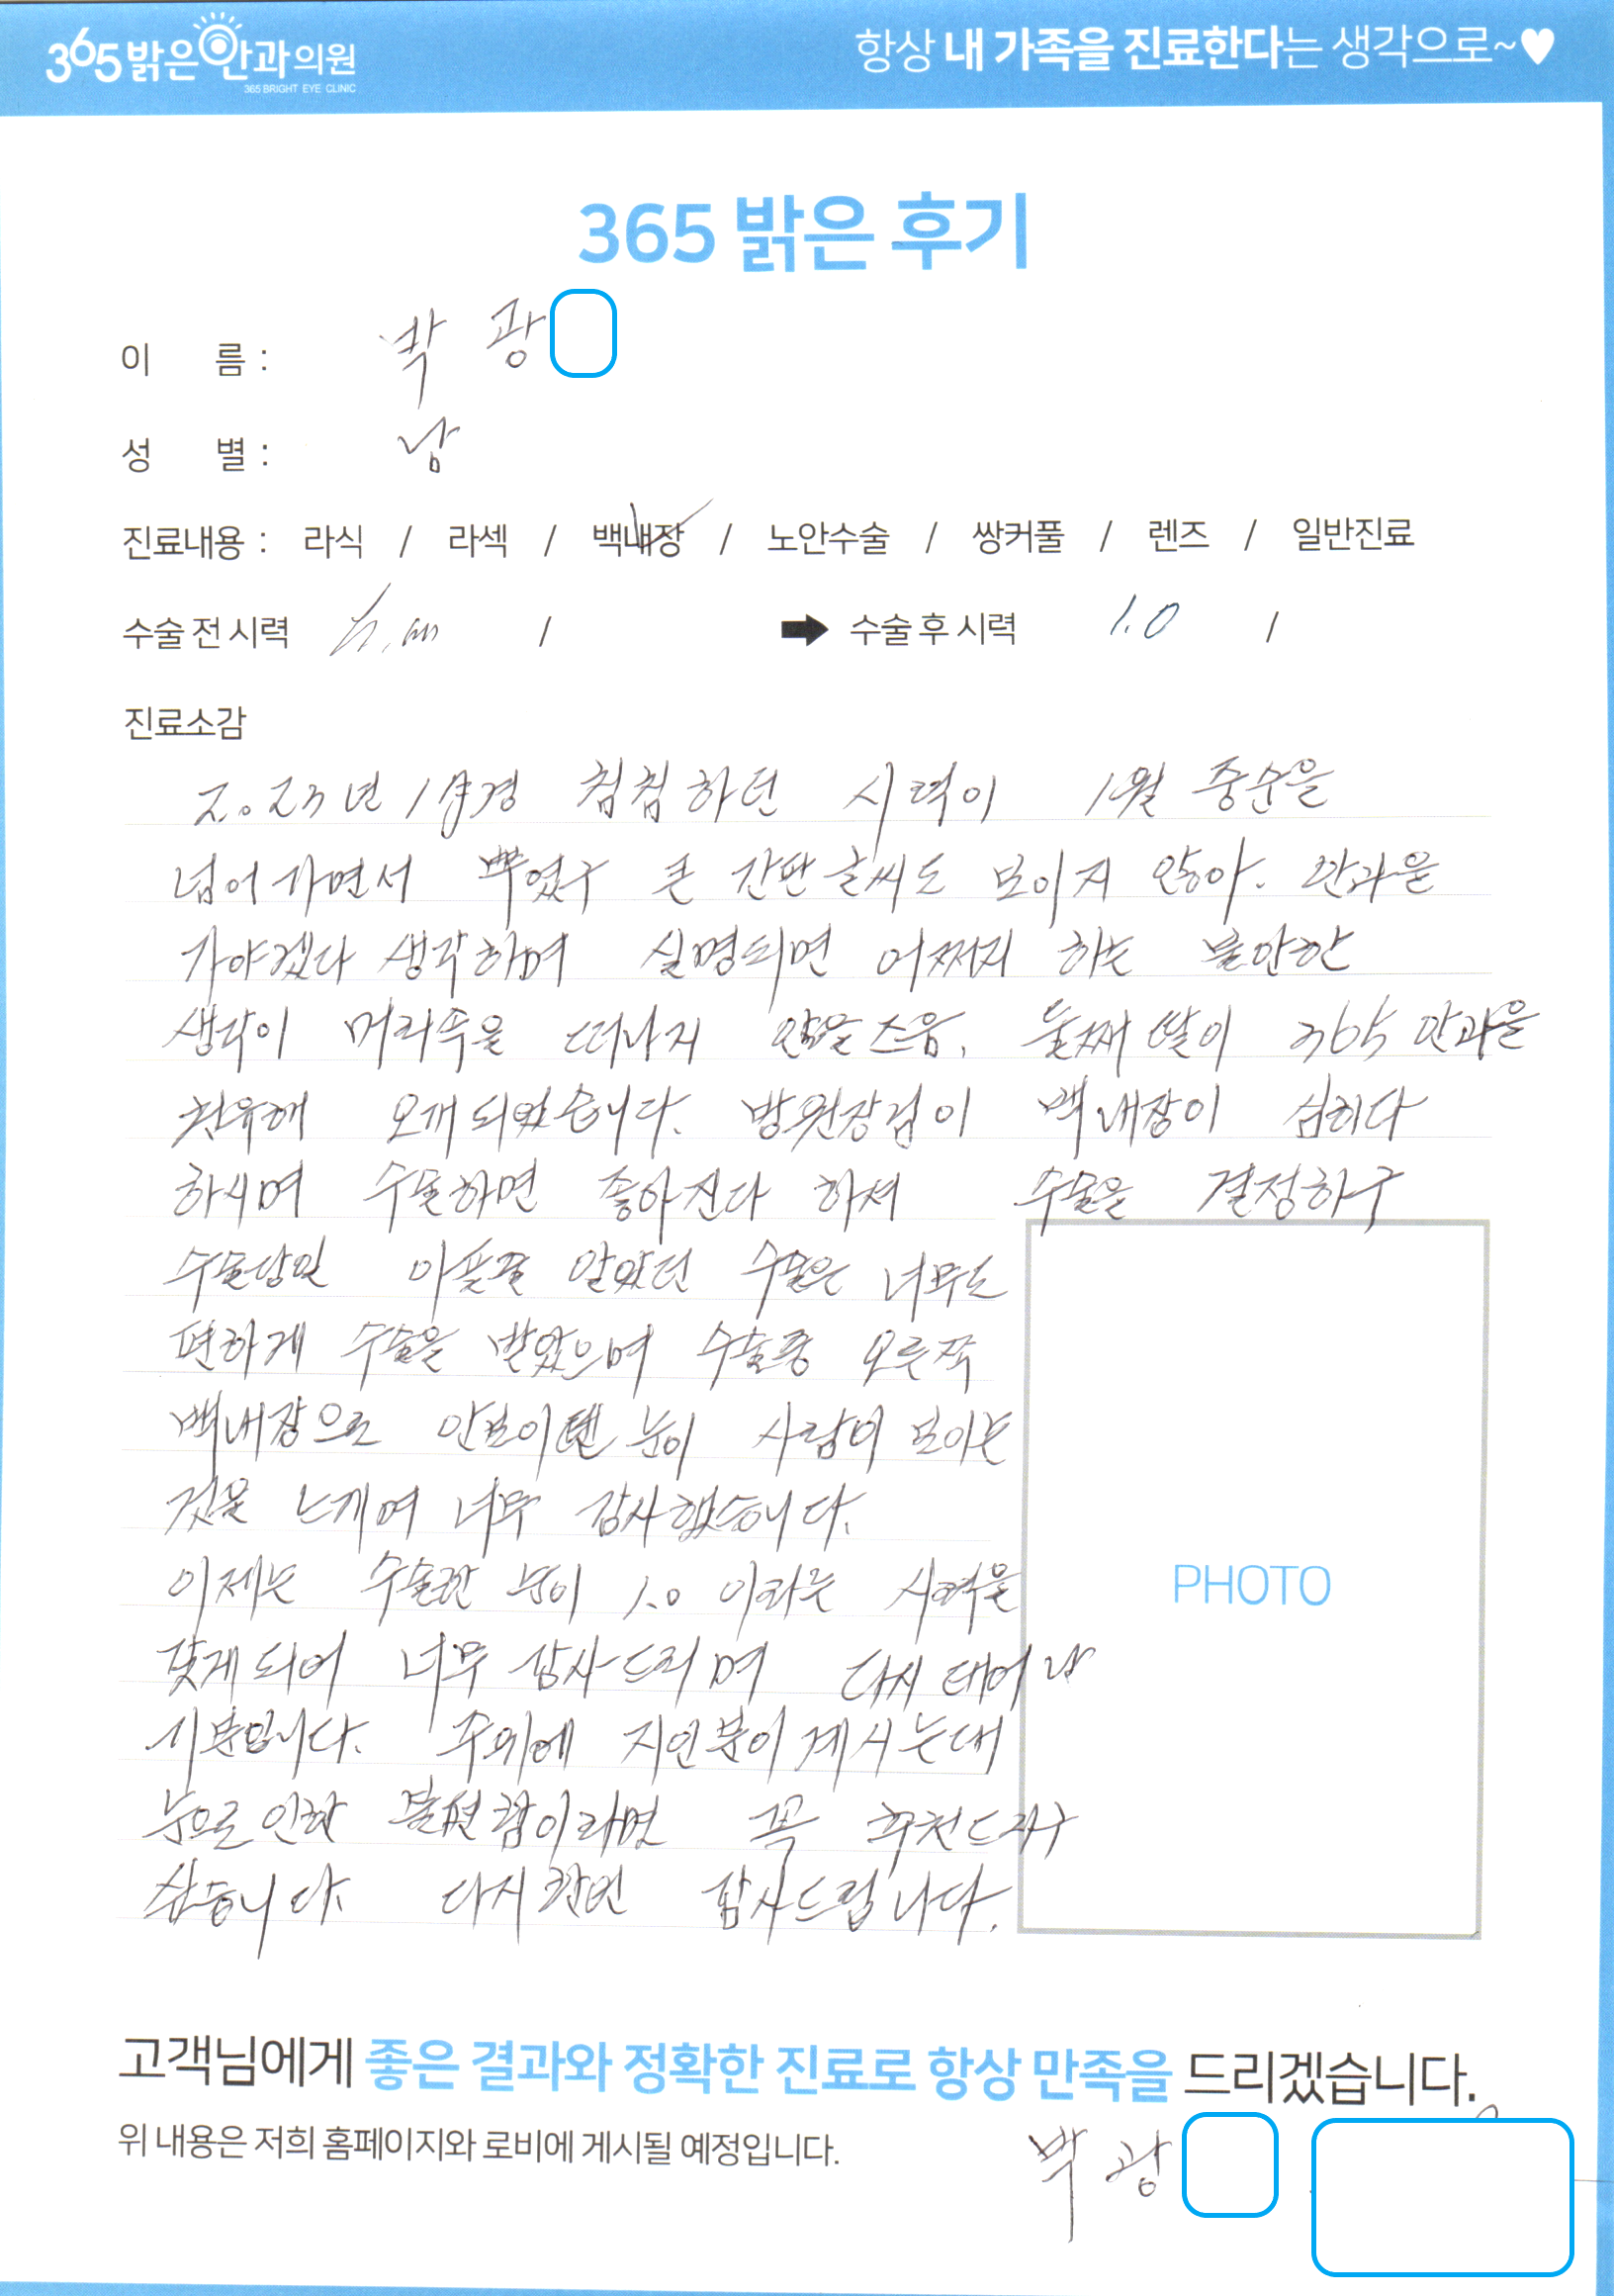 365밝은안과의원
365 BRIGHT EYE CLINIC
항상 내 가족을 진료한다는 생각으로~♥
365 밝은 후기
이 름 : 박 광
성 별 : 남
진료내용 : 라식 / 라섹 / 백내장 / 노안수술 / 쌍커풀 / 렌즈 / 일반진료
수술 전 시력 / ➡ 수술 후 시력 1.0 /
진료소감
2023년 1월경 침침하던 시력이 1월 중순을
넘어가면서 큰 간판글씨도 보이지 않아. 안과을
가야겠다 생각하며 실명되면 어쩌지 하는 불안한
생각이 머리속을 떠나지 둘째 딸이 365 안과을
오게 되었습니다. 방원장님이 백내장이 심하다
하시며 수술하면 좋아진다 하셔 수술을 결정하구
수술당일 아플줄 알았던 수술은 너무도
편하게 수술을 받았으며 수술중 오른쪽
백내장으로 눈이 사람이 보이는
것을 느게며 너무 감사했습니다.
이제는 수술한 눈이 1.0 이라는 시력을
갖게되어 너무 감사드리며 다시 태어나
기분입니다. 주위에 지인분이 계시는대
눈으로 인한 불편함이라면 꼭 추천드리구
싶습니다. 다시한번 감사드립니다.
PHOTO
고객님에게 좋은 결과와 정확한 진료로 항상 만족을 드리겠습니다.
위 내용은 저희 홈페이지와 로비에 게시될 예정입니다.
박 광